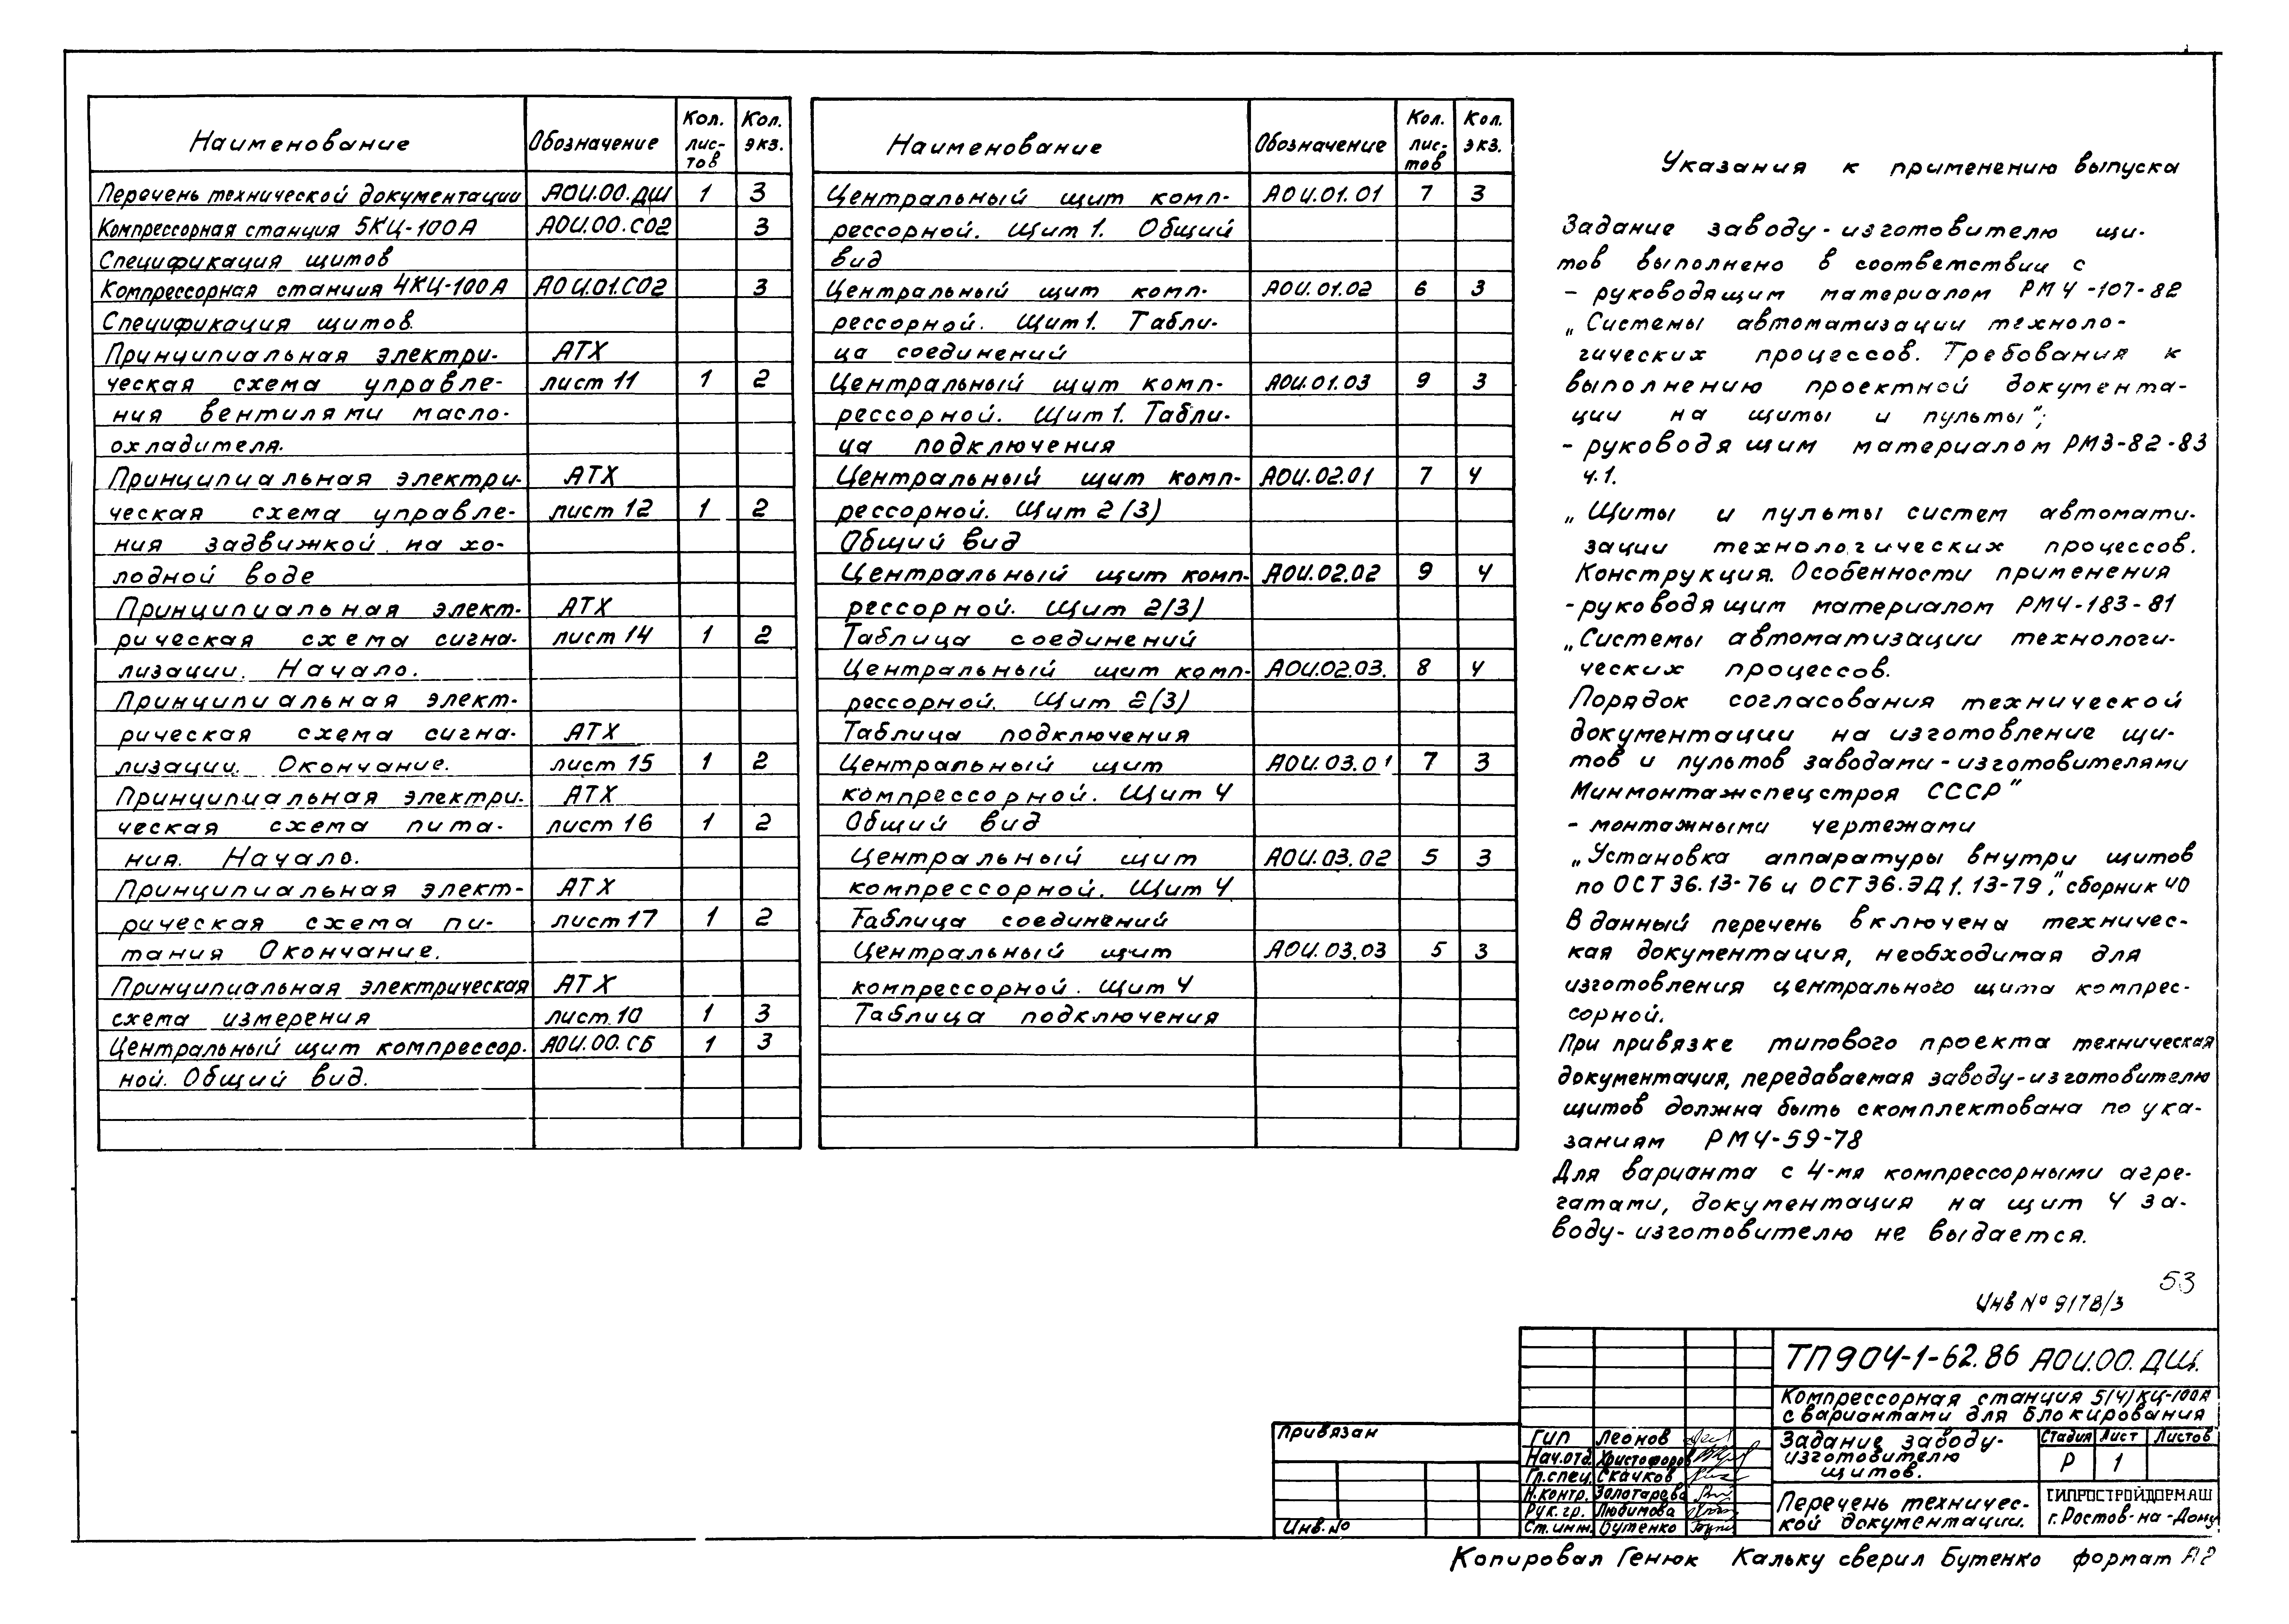 Наименование Обозначение Кол. листов Кол. экз.
Перечень технической документации АОИ.00.ДЩ 1 3
Компрессорная станция 5КЦ-100А АОИ.00.С02 3
Спецификация щитов
Компрессорная станция 4КЦ-100А АОИ.01.С02 3
Спецификация щитов.
Принципиальная электри- АТХ
ческая схема управле- лист 11 1 2
ния вентилями масло-
охладителя.
Принципиальная электри- АТХ
ческая схема управле- лист 12 1 2
ния задвижкой на хо-
лодной воде
Принципиальная элект- АТХ
рическая схема сигна- лист 14 1 2
лизации. Начало.
Принципиальная элект-
рическая схема сигна- АТХ
лизации. Окончание. лист 15 1 2
Принципиальная электри- АТХ
ческая схема пита- лист 16 1 2
ния. Начало.
Принципиальная элект- АТХ
рическая схема пи- лист 17 1 2
тания Окончание.
Принципиальная электрическая АТХ
схема измерения лист 10 1 3
Центральный щит компрессор- АОИ.00.СБ 1 3
ной. Общий вид.
Наименование Обозначение Кол. листов Кол. экз.
Центральный щит комп- АОИ.01.01 7 3
рессорной. Щит 1. Общий
вид
Центральный щит комп- АОИ.01.02 6 3
рессорной. Щит 1. Табли-
ца соединений
Центральный щит комп- АОИ.01.03 9 3
рессорной. Щит 1. Табли-
ца подключения
Центральный щит комп- АОИ.02.01 7 4
рессорной. Щит 2(3)
Общий вид
Центральный щит комп- АОИ.02.02 9 4
рессорной. Щит 2(3)
Таблица соединений
Центральный щит комп- АОИ.02.03. 8 4
рессорной. Щит 2(3)
Таблица подключения
Центральный щит АОИ.03.01 7 3
компрессорной. Щит 4
Общий вид
Центральный щит АОИ.03.02 5 3
компрессорной. Щит 4
Таблица соединений
Центральный щит АОИ.03.03 5 3
компрессорной. Щит 4
Таблица подключения
Указания к применению выпуска
Задание заводу-изготовителю щи-
тов выполнено в соответствии с
- руководящим материалом РМ4-107-82
„Системы автоматизации техноло-
гических процессов. Требования к
выполнению проектной документа-
ции на щиты и пульты";
- руководящим материалом РМ3-82-83
ч.1.
„Щиты и пульты систем автомати-
зации технологических процессов.
Конструкция. Особенности применения
- руководящим материалом РМ4-183-81
„Системы автоматизации технологи-
ческих процессов.
Порядок согласования технической
документации на изготовление щи-
тов и пультов заводами-изготовителями
Минмонтажспецстроя СССР"
- монтажными чертежами
„Установка аппаратуры внутри щитов
по ОСТ36.13-76 и ОСТ36.ЭД1.13-79," сборник 40
В данный перечень включена техничес-
кая документация, необходимая для
изготовления центрального щита компрес-
сорной.
При привязке типового проекта техническая
документация, передаваемая заводу-изготовителю
щитов должна быть скомплектована по ука-
заниям РМ4-59-78
Для варианта с 4-мя компрессорными агре-
гатами, документация на щит 4 за-
воду-изготовителю не выдается.
53
Инв № 9178/3
ТП904-1-62.86 АОИ.00.ДЩ.
Компрессорная станция 5(4)КЦ-100А
с вариантами для блокирования
Привязан
Инв.№
ГИП Леонов
Нач.отд. Христофоров
Гл.спец. Скачков
Н.контр. Золотарева
Рук.гр. Любимова
Ст.инж. Бутенко
Задание заводу-
изготовителю
щитов.
Стадия Лист Листов
Р 1
Перечень техничес-
кой документации.
ГИПРОСТРОЙДОРМАШ
г.Ростов-на-Дону
Копировал Генюк Кальку сверил Бутенко формат А2